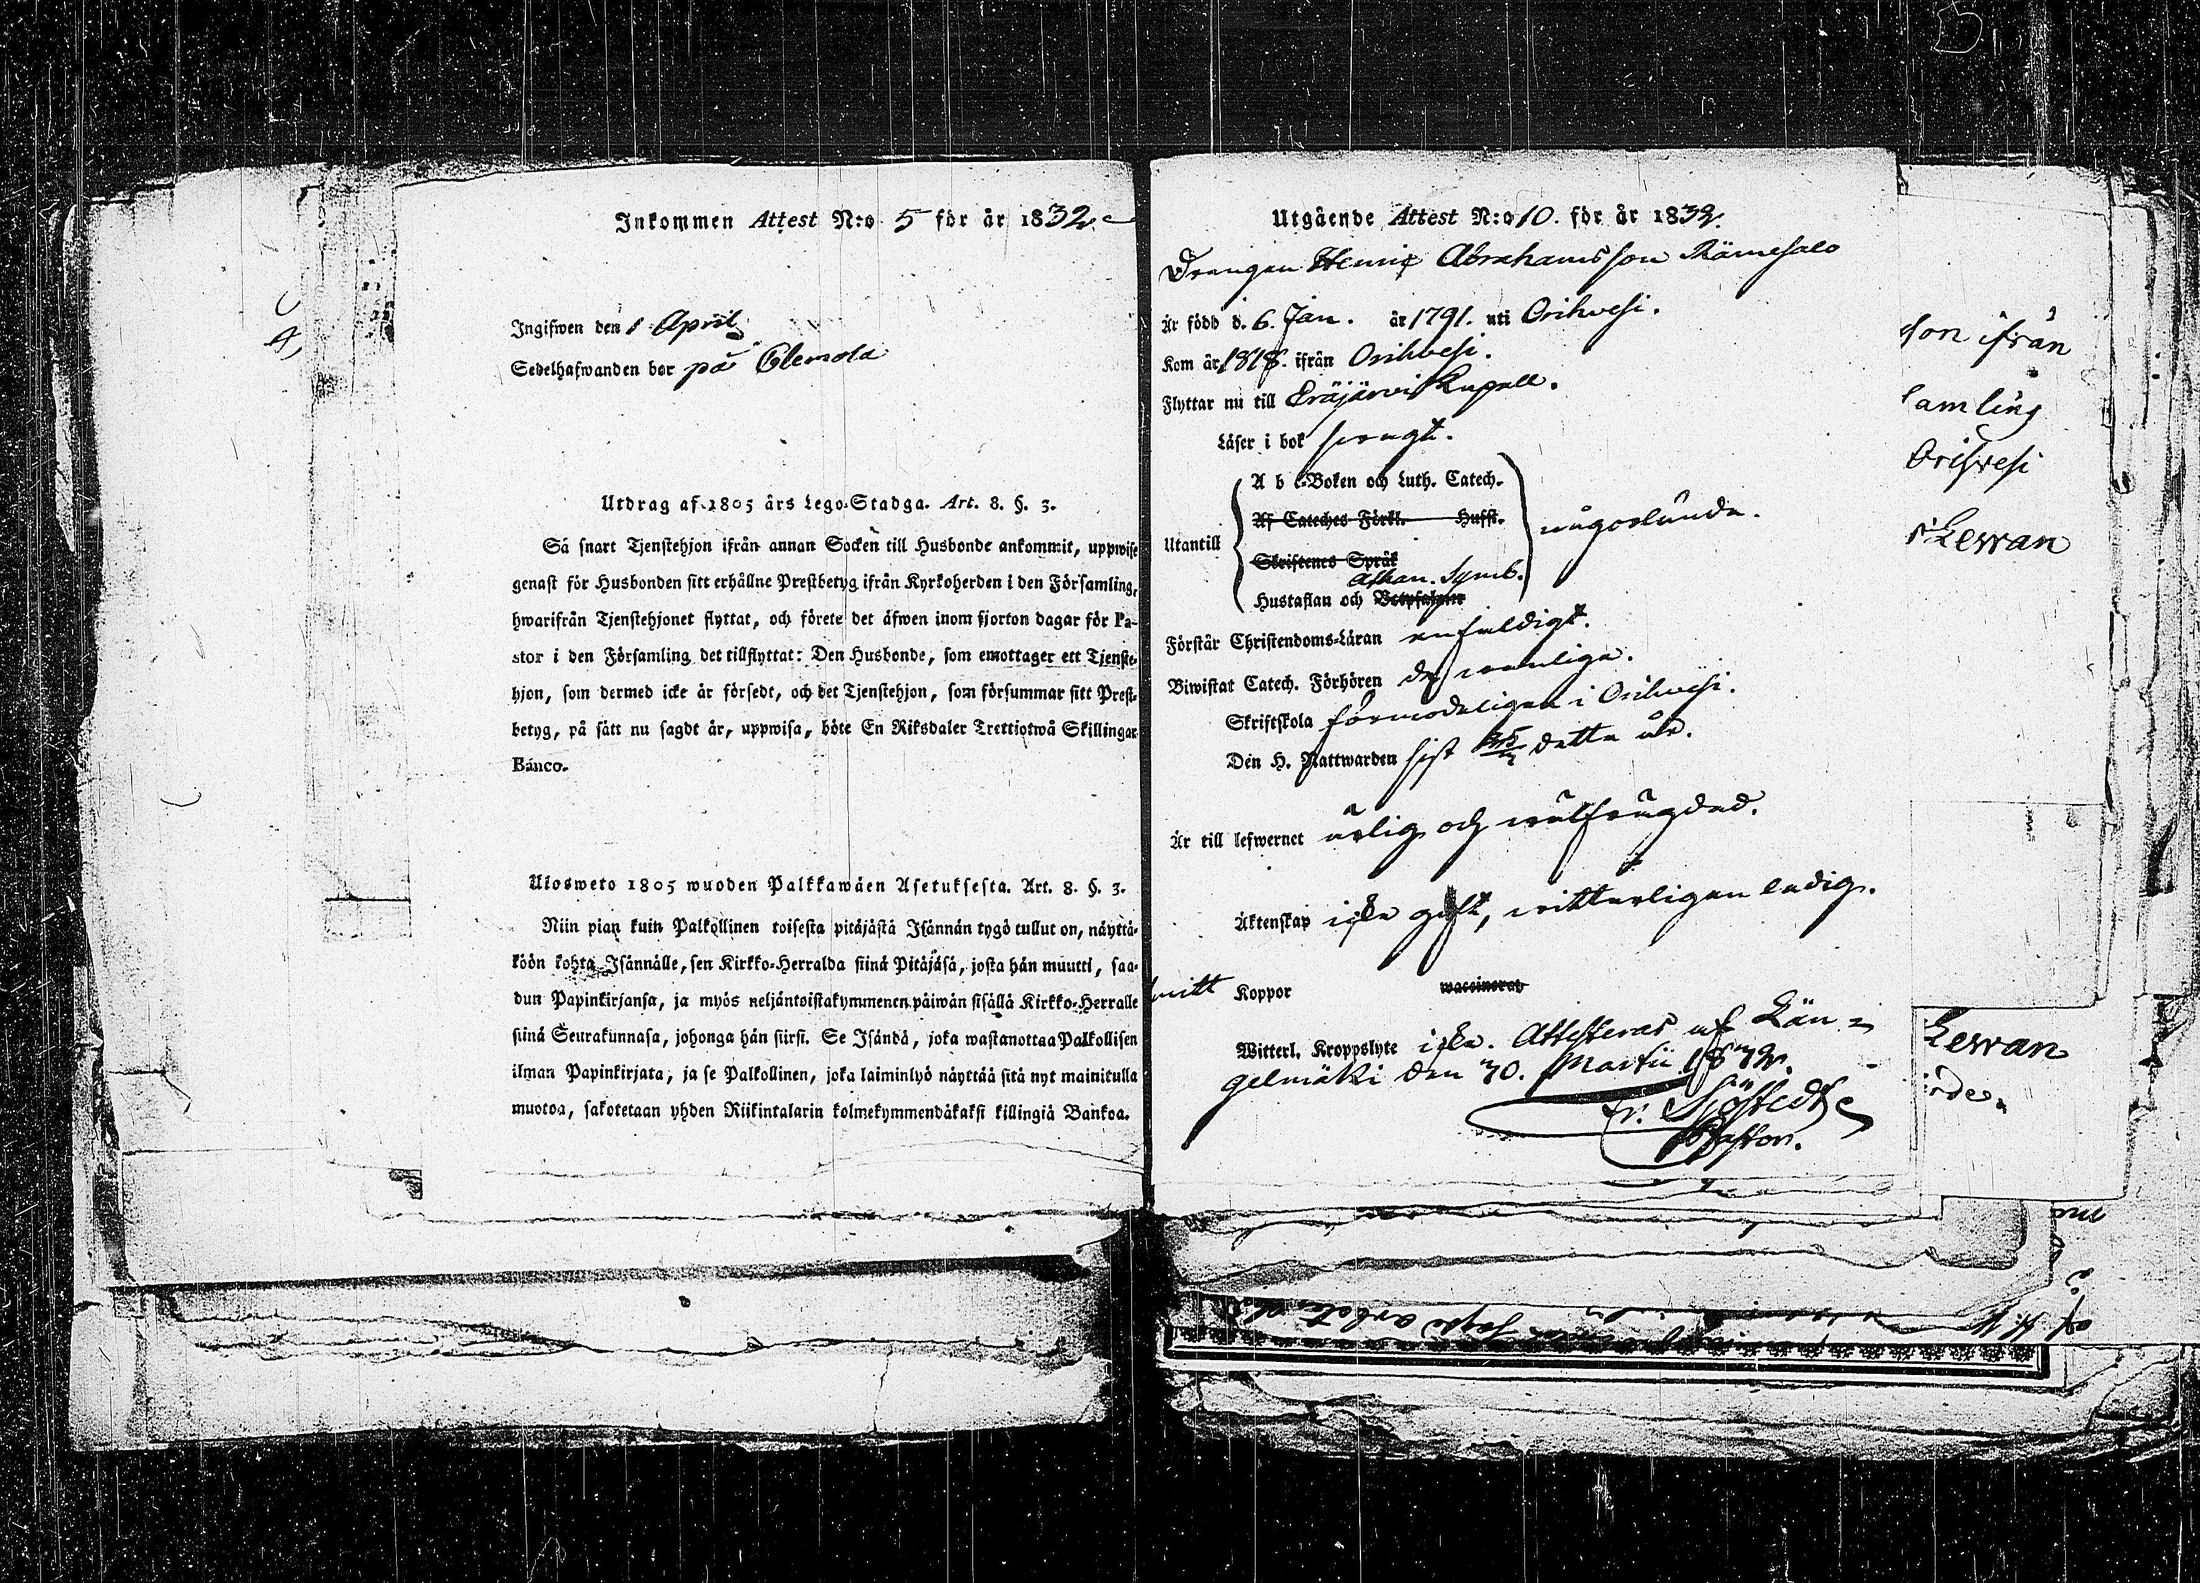 Inkommen Attest N:o 5 för år 1832.
Ingifwen den 1 April
Sedelhafwanden bor på Elemola
Utdrag af 1805 års Lego-Stadga. Art. 8. §. 3.
Så snart Tjenstehjon ifrån annan Socken till Husbonde ankommit, uppwise
genast för Husbonden sitt erhållne Prestbetyg ifrån Kyrkoherden i den Församling,
hwarifrån Tjenstehjonet flyttat, och förete det äfwen inom fjorton dagar för Pa-
stor i den Församling det tillflyttat: Den Husbonde, som emottager ett Tjenste-
hjon, som dermed icke är försedt, och det Tjenstehjon, som försummar sitt Prest-
betyg, på sätt nu sagdt är, uppwisa, böte En Riksdaler Trettiotwå Skillingar
Banco.
Ulosweto 1805 wuoden Palkkawäen Asetuksesta. Art. 8. §. 3.
Niin pian kuin Palkollinen toisesta pitäjästä Isännän tygö tullut on, näyttä-
köön kohta Isännälle, sen Kirkko-Herralda siinä Pitäjäsä, josta hän muutti, saa-
dun Papinkirjansa, ja myös neljäntoistakymmenen päiwän sisällä Kirkko-Herralle
siinä Seurakunnasa, johonga hän siirsi. Se Isändä, joka wastanottaa Palkollisen
ilman Papinkirjata, ja se Palkollinen, joka laiminlyö näyttää sitä nyt mainitulla
muotoa, sakotetaan yhden Riikintalarin kolmekymmendäkaksi killingiä Bankoa.
Utgående Attest N:o 10. för år 1832.
Drengen Henric Abrahamsson Rämesalo
Är född d. 6. Jan. år 1791. uti Orihvesi.
Kom år 1818. ifrån Orihvesi.
Flyttar nu till Eräjärvi Kapell.
Läser i bok svagt.
A b c-Boken och Luth. Catech.
Af Cateches Förkl. Hufst.
Utantill någorlunda.
Skriftenes Språk
Athan. Symb.
Hustaflan och Botpsalmer
Förstår Christendoms-Läran enfaldigt.
Biwistat Catech. Förhören de vanliga.
Skriftskola förmodeligen i Orihvesi.
Den H. Nattwarden sist detta år.
Är till lefwernet ärlig och välfrägdad.
Äktenskap icke gift, vitterligen ledig.
Koppor haft waccinerad
Witterl. Kroppslyte icke. Attesteras af Län-
gelmäki den 30. Martii 1832.
Fr. Sjöstedt
Pastor.
son ifrån
samling
Orihvesi
Lewan
Lewan